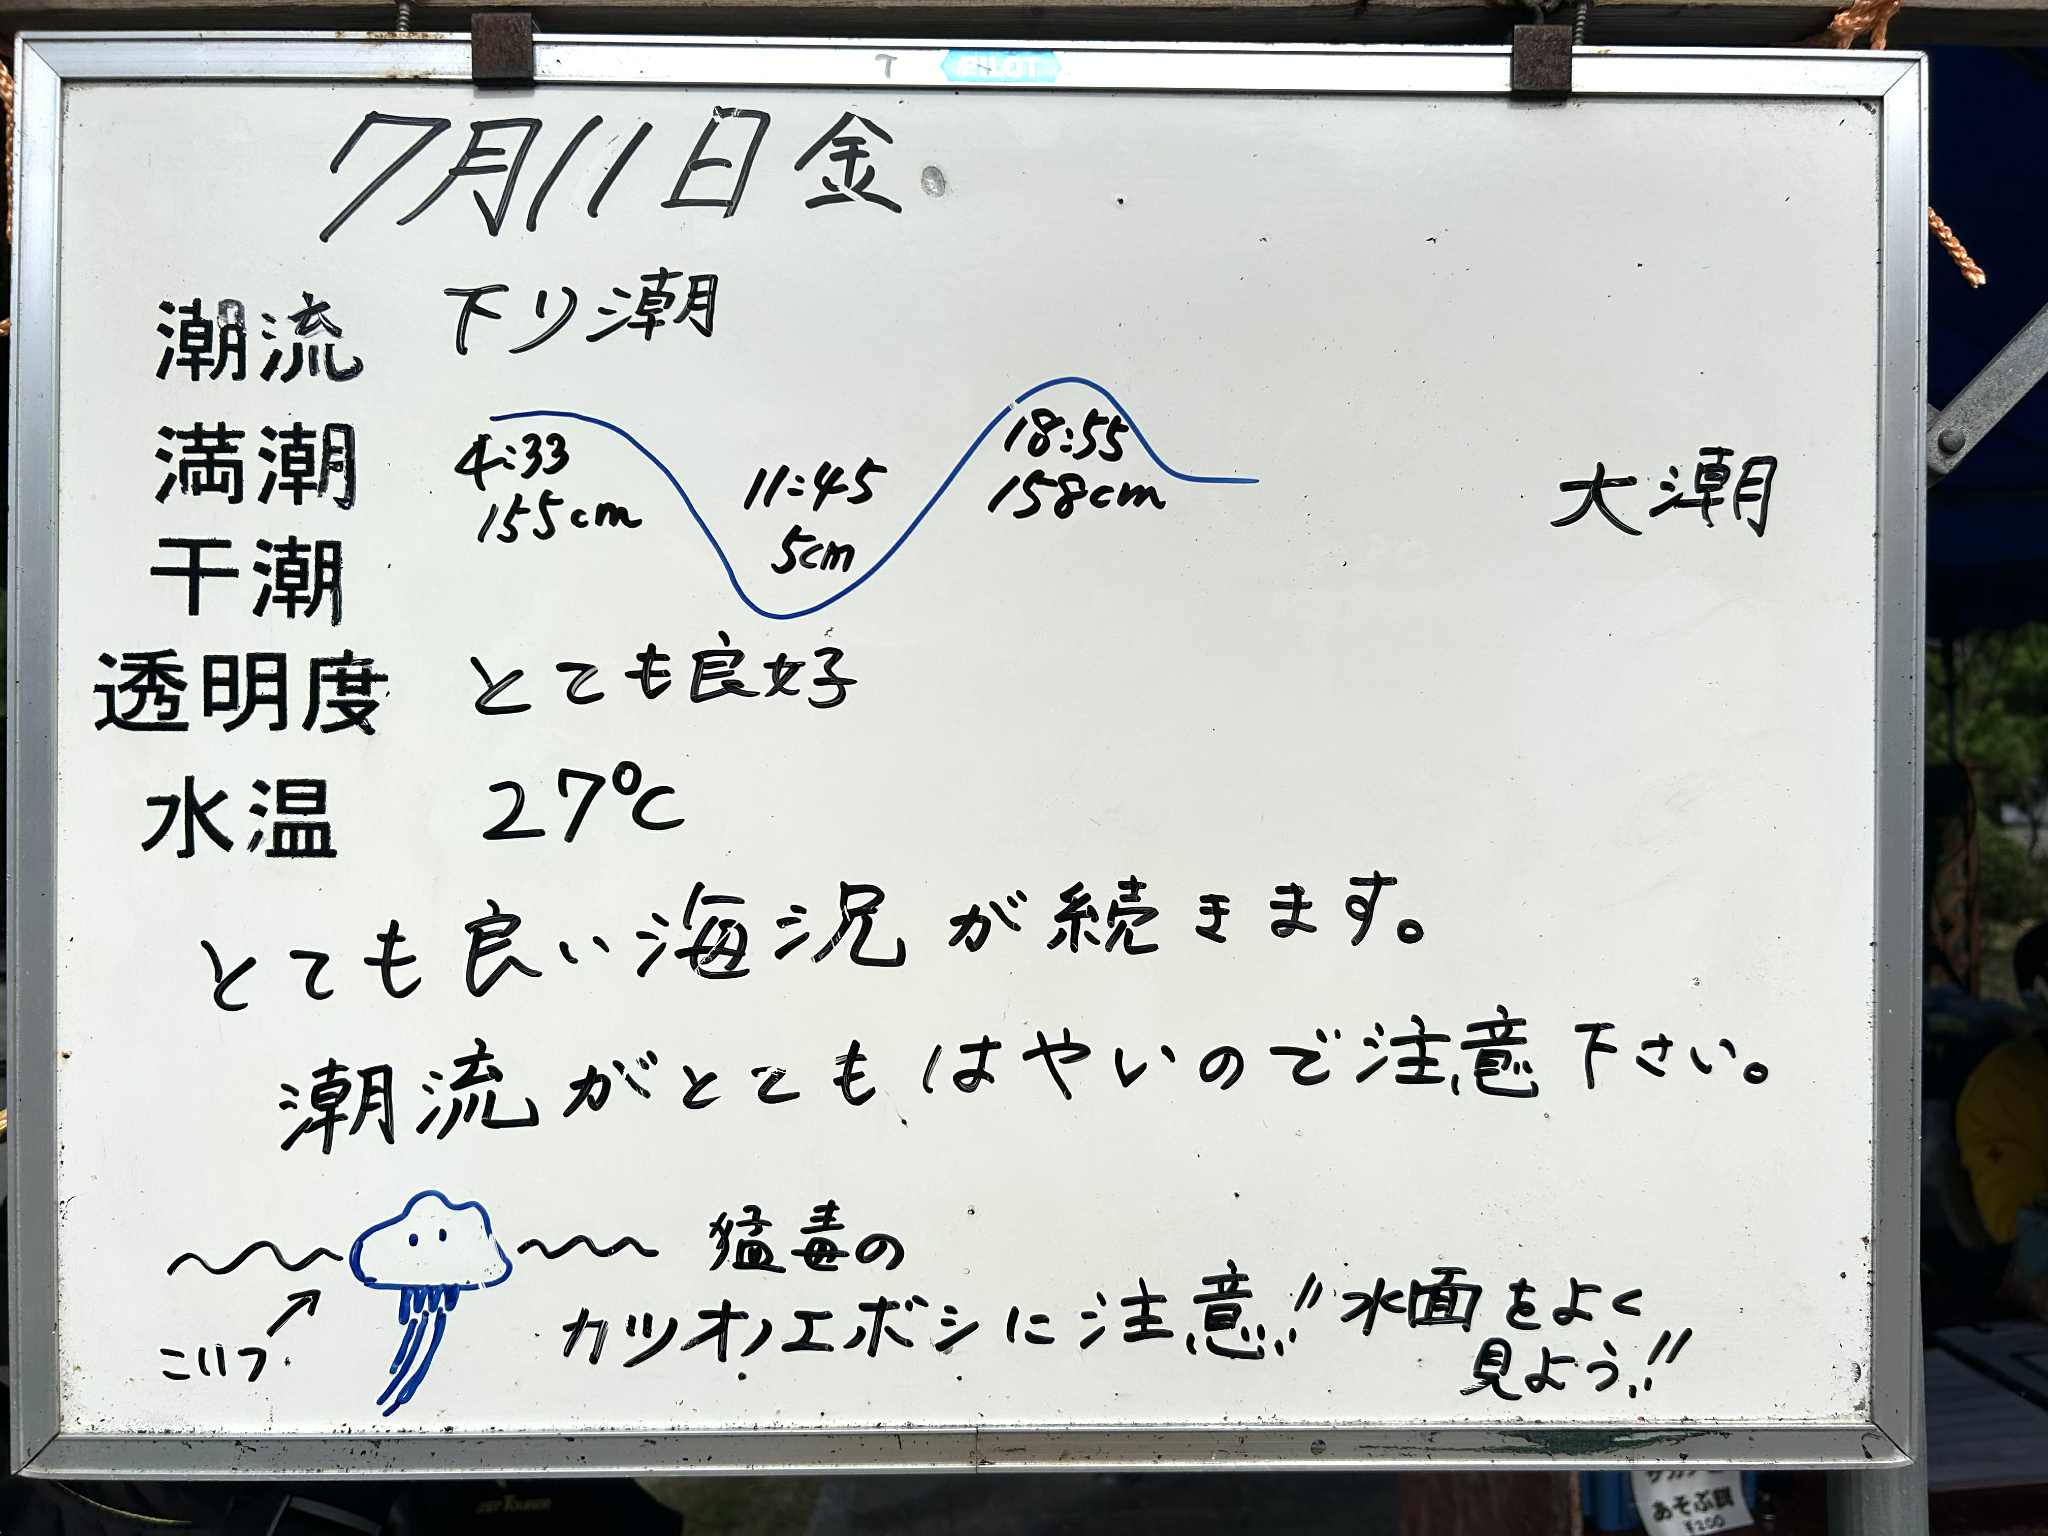 PILOT
7月11日金
潮流 下り潮
満潮 4:33 155cm 18:55 158cm 大潮
干潮 11:45 5cm
透明度 とても良好
水温 27℃
とても良い海況が続きます。
潮流がとてもはやいので注意下さい。
猛毒の
カツオノエボシに注意!! 水面をよく
見よう!!
こいつ
あそぶ餌
¥200